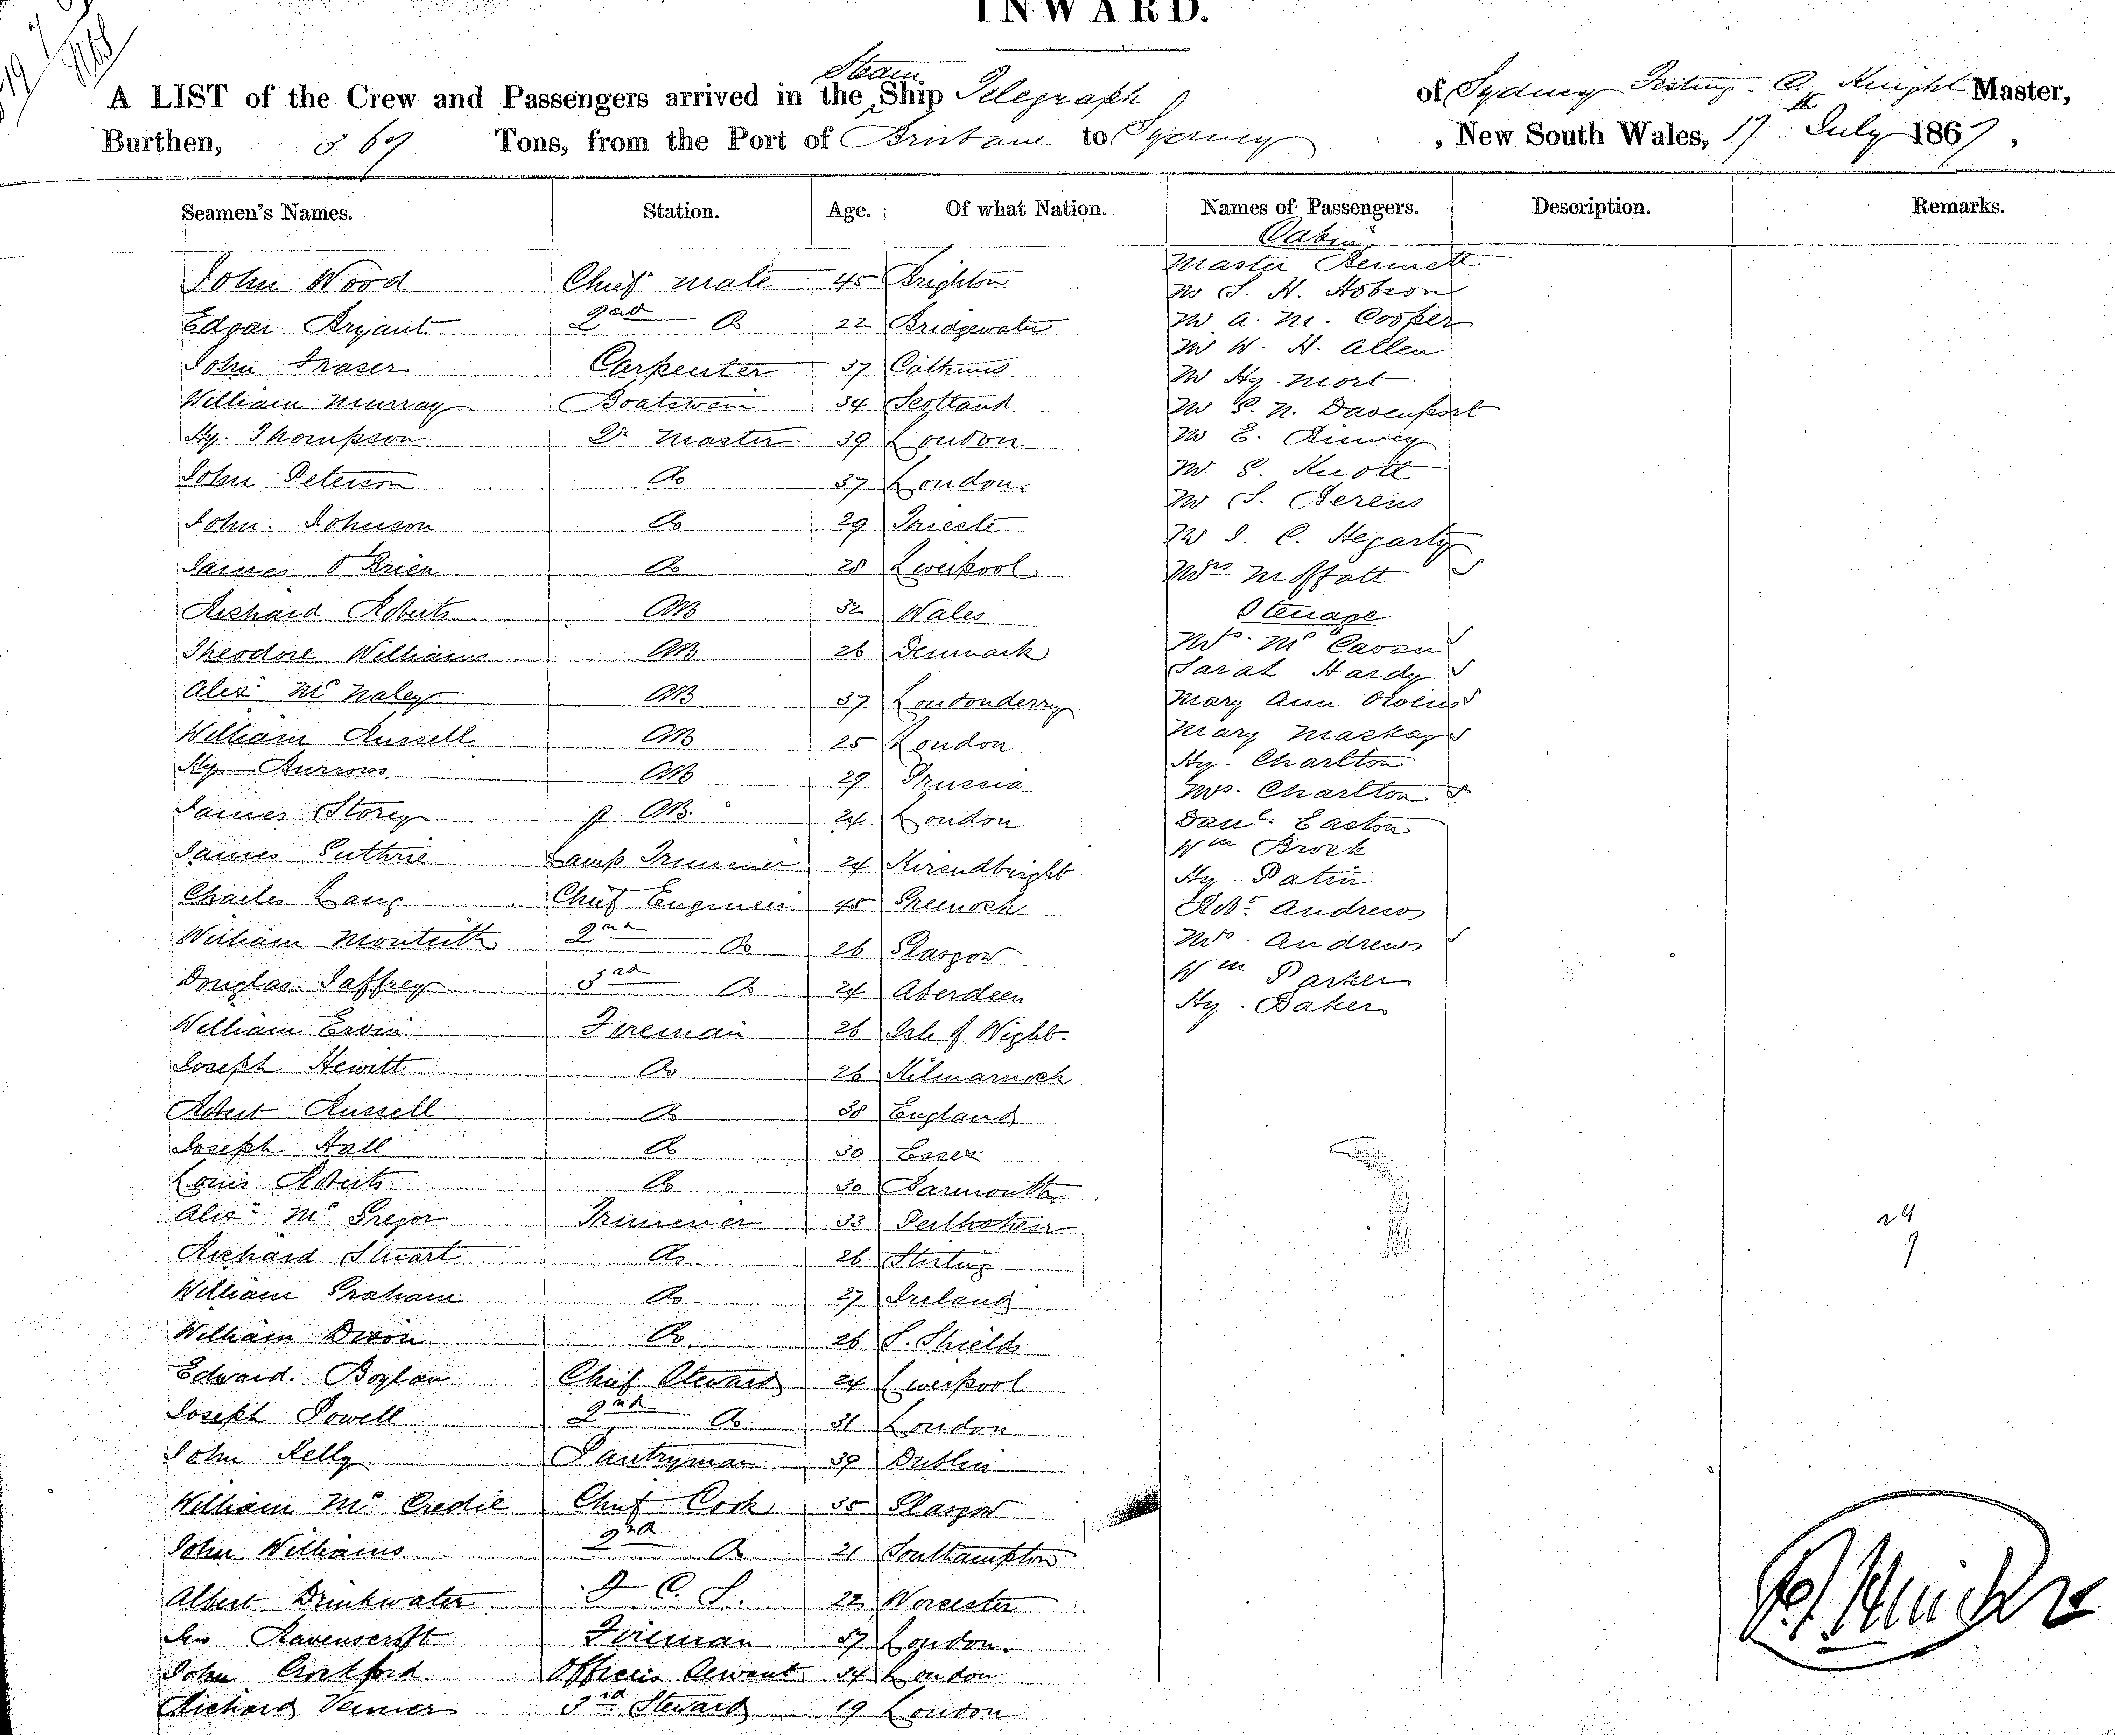 INWARD.
A LIST of the Crew and Passengers arrived in the Steam Ship Telegraph of Sydney C. Knight Master,
Burthen, 369 Tons, from the Port of Brisbane to Sydney, New South Wales, 17th July 1867,
Seamen's Names. Station. Age. Of what Nation. Names of Passengers. Description. Remarks.
John Wood Chief Mate 45 Brighton
Edgar Bryant 2nd Do 22 Bridgewater
John Fraser Carpenter 37
William Murray Boatswain 34 Scotland
Hy. Thompson Qr Master 39 London
John Peterson Do 37 London
John Johnson Do 29 Trieste
James O'Brien Do 28 Liverpool
Richard Roberts AB 32 Wales
Theodore Williams AB 26 Denmark
Alexr McNaley AB 37 Londonderry
William Russell AB 25 London
Hy Burrows AB 29 Prussia
James Storey AB 24 London
James Guthrie Lamp Trimmer 24 Kircudbright
Charles Lang Chief Engineer 45 Greenock
William Monteith 2nd Do 26 Glasgow
Douglas Jaffrey 3rd Do 24 Aberdeen
William Ervin Fireman 26 Isle of Wight
Joseph Hewitt Do 26 Kilmarnock
Robert Russell Do 38 England
Joseph Hall Do 30 Essex
Louis Roberts Do 30 Yarmouth
Alexr McGregor Trimmer 33
Richard Stuart Do 26 Stirling
William Graham Do 27 Ireland
William Dixon Do 26 S. Shields
Edward Boylan Chief Steward 24 Liverpool
Joseph Powell 2nd Do 31 London
John Kelly Pantryman 39 Dublin
William McCredie Chief Cook 35 Glasgow
John Williams 2nd Do 21 Southampton
Albert Drinkwater F. C. S. 22 Worcester
Jno Ravenscroft Fireman 37 London
John Crockford Officers Servant 34 London
Richard Venner 3rd Steward 19 London
Cabin
Master Bennett
Mr S. H. Hobson
Mr A. M. Cooper
Mr W. H. Allen
Mr Hy. Mort
Mr G. N. Davenport
Mr E. Binney
Mr G. Knott
Mr S. Berens
Mr J. C. Hegarty
Mrs Moffatt
Steerage
Mrs McCavan
Sarah Hardy
Mary Ann
Mary Mackay
Hy. Charlton
Mrs. Charlton
Danl. Easton
Wm Brock
Hy Patin
Robt Andrews
Mrs Andrews
Wm Parker
Hy. Baker
24
9